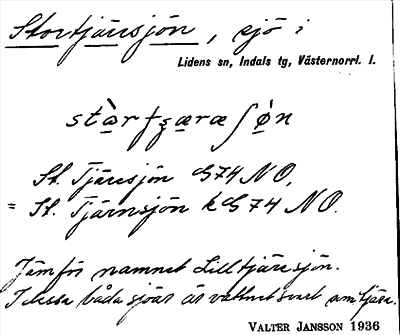 Stortjäresjön, sjö i
Lidens sn, Indals tg, Västernorrl. l.
St. Tjäresjön G74 NO,
= St. Tjärnsjön k G74 NO.
Jämför namnet Lilltjäresjön.
I dessa båda sjöar är vattnet svart som tjära.
VALTER JANSSON 1936